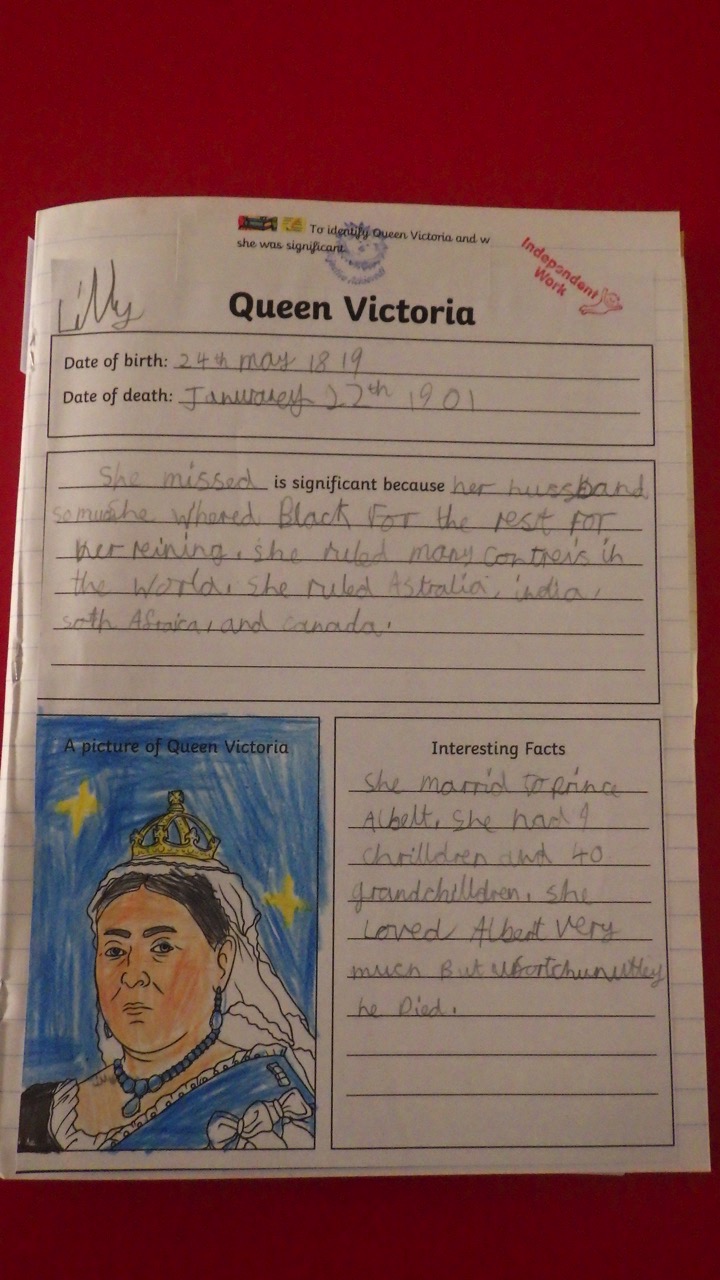 To identify Queen Victoria and w
she was significant.
Independent
Work
Lilly
Queen Victoria
Date of birth: 24th may 1819
Date of death: Januarey 22th 1901
She missed is significant because her hussband
so much she whered Black For the rest For
her reining. she ruled many contreis in
the world. she ruled Astralia, india,
soth Afraica, and canada.
A picture of Queen Victoria
Interesting Facts
She marrid to prince
Albelt. She had 9
chrilldren and 40
grandchilldren. she
Loved Albert very
much But ufortchunutley
he Died.